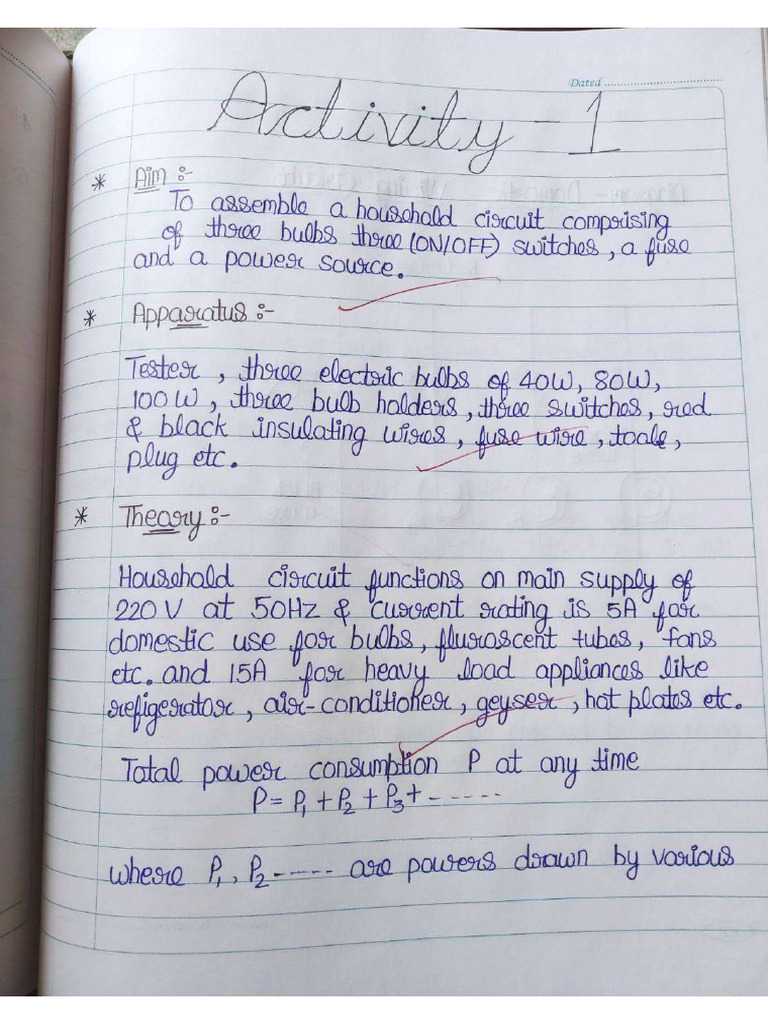 Dated
Activity - 1
* Aim :-
To assemble a household circuit comprising
of three bulbs three (ON/OFF) switches, a fuse
and a power source.
* Apparatus :-
Tester, three electric bulbs of 40W, 80W,
100 W, three bulb holders, three switches, red
& black insulating wires, fuse wire, toole,
plug etc.
* Theory :-
Household circuit functions on main supply of
220 V at 50Hz & current rating is 5A for
domestic use for bulbs, fluroscent tubes, fans
etc. and 15A for heavy load appliances like
refigerator, air-conditioner, geyser, hot plates etc.
Total power consumption P at any time
P = P₁ + P₂ + P₃ + ------
where P₁, P₂ ----- are powers drawn by various